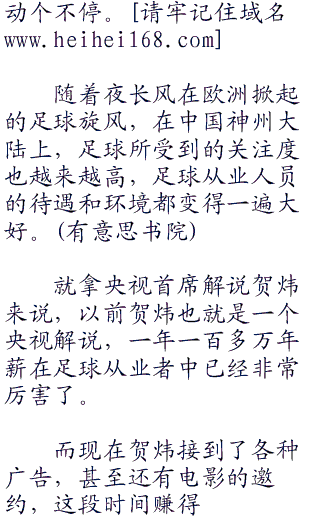 动个不停。[请牢记住域名
www.heihei168.com]
随着夜长风在欧洲掀起
的足球旋风，在中国神州大
陆上，足球所受到的关注度
也越来越高，足球从业人员
的待遇和环境都变得一遍大
好。(有意思书院)
就拿央视首席解说贺炜
来说，以前贺炜也就是一个
央视解说，一年一百多万年
薪在足球从业者中已经非常
厉害了。
而现在贺炜接到了各种
广告，甚至还有电影的邀
约，这段时间赚得